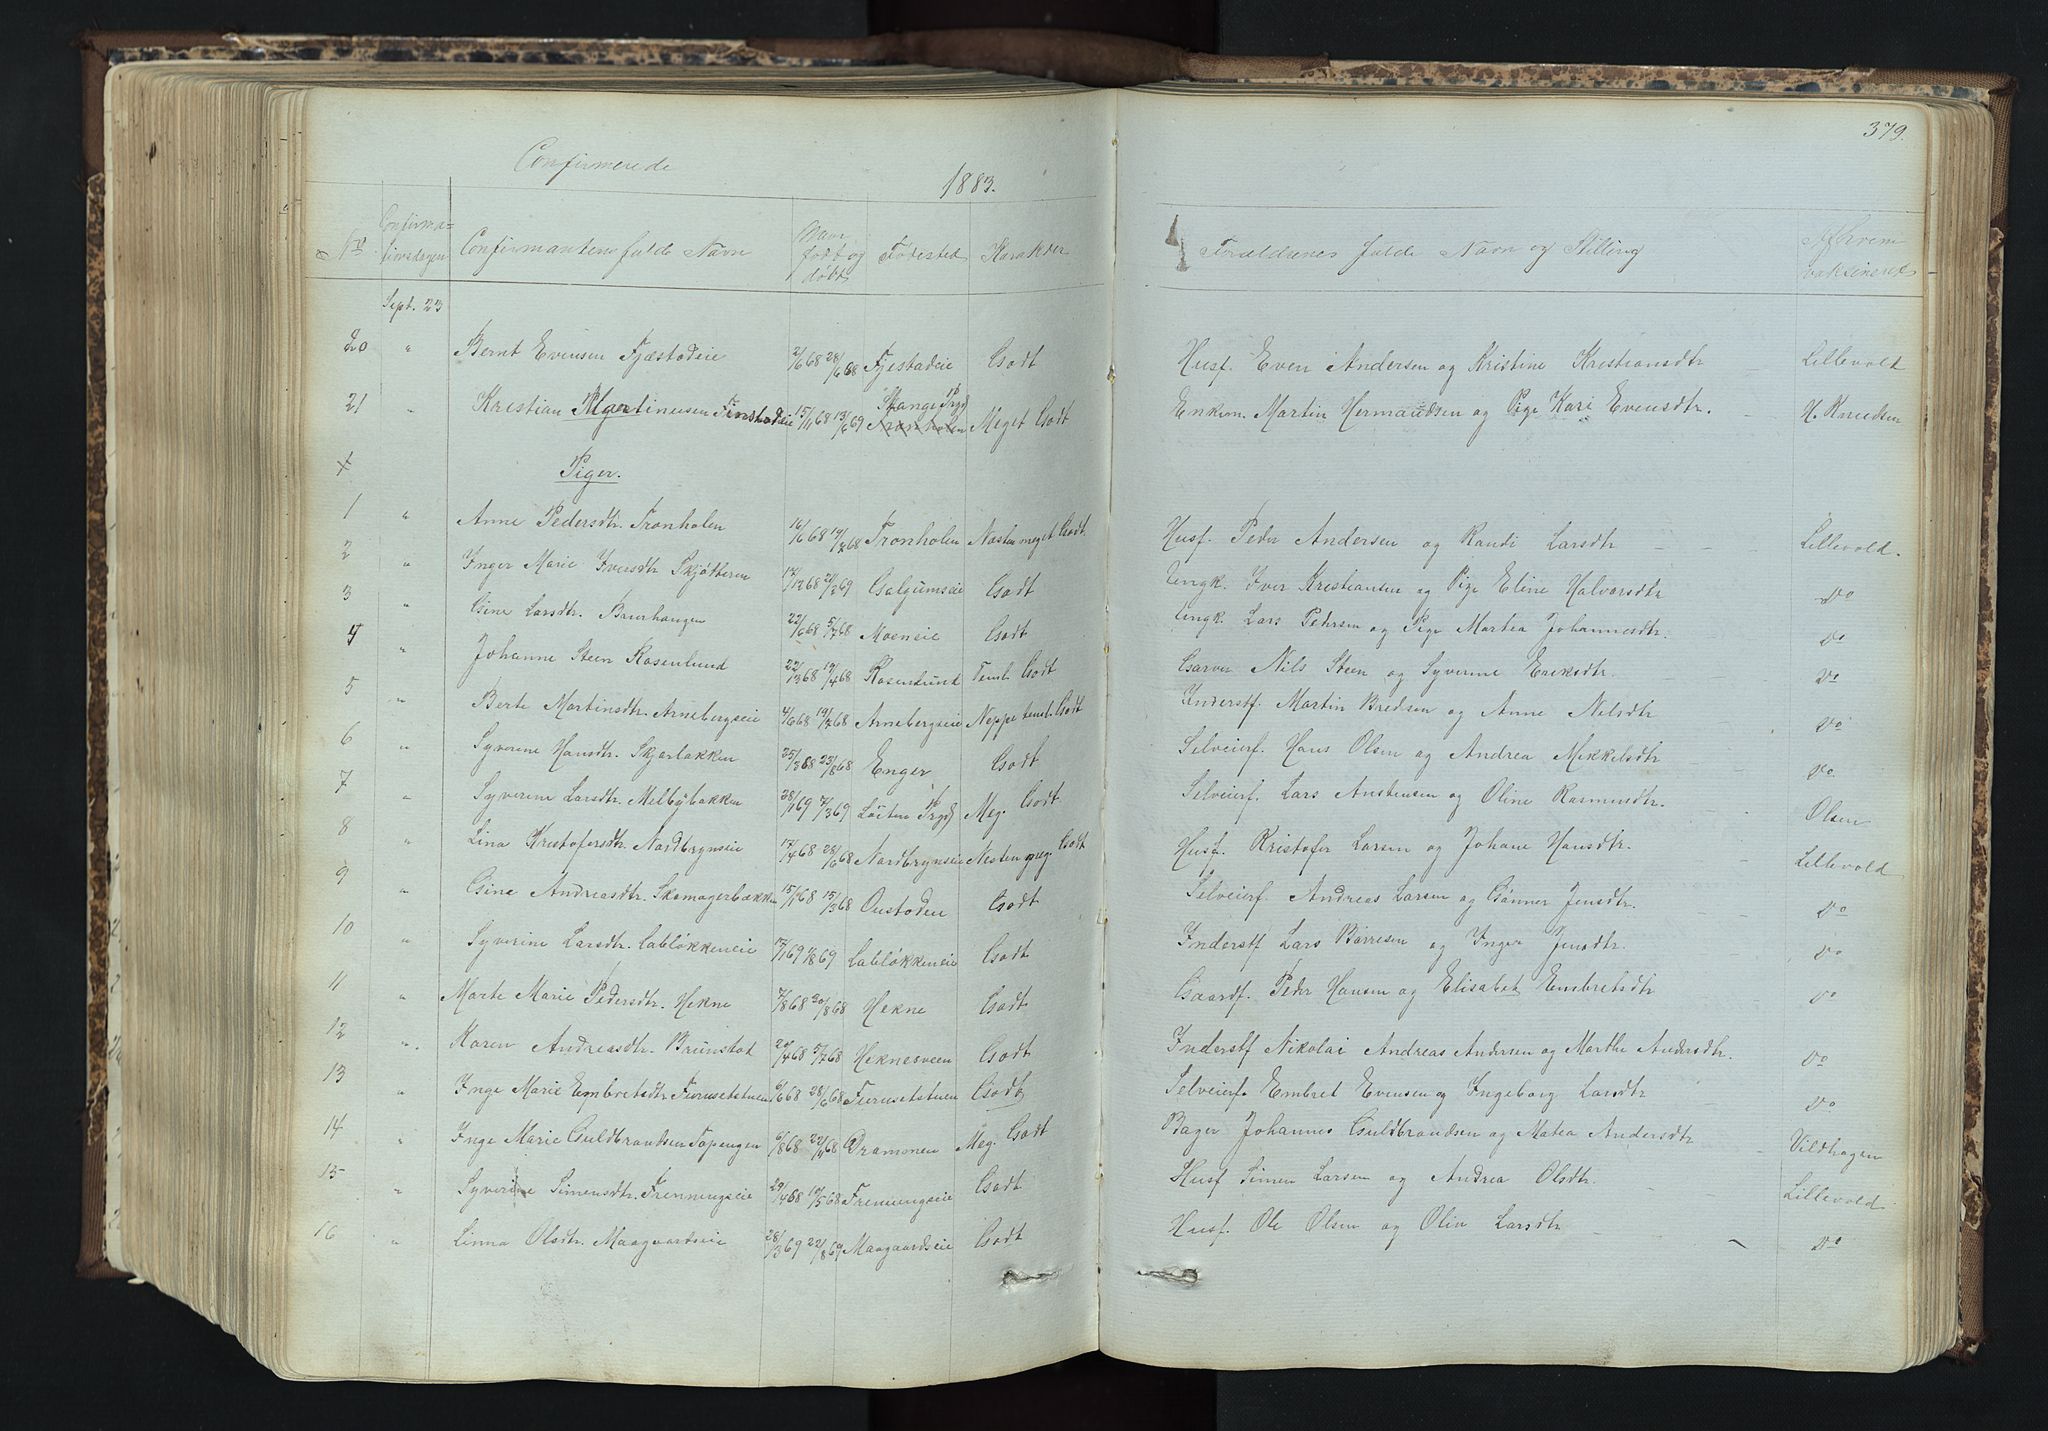 379.
Confirmerede 1883.
No Confirmationsdagen Confirmantens fulde Navn Naar født og døbt Fødested Karakter Forældrenes fulde Navn og Stilling Af hvem vaksineret
Sept. 23
20 " Bernt Evensen Fjæstadeie 2/6 68 28/6 68 Fjestadeie Godt Husf. Even Andersen og Kristine Kristiansdtr Lillevold
21 " Kristian Martinusen Finstadeie 15/11 68 13/6 69 Stange Prgd Tronholen Meget Godt Enkem. Martin Hermandsen og Pige Kari Evensdtr. H. Knudsen
Piger.
1 " Anne Pedersdtr. Tronholen 16/6 68 19/7 68 Tronholen Næsten meget Godt. Husf. Peder Andersen og Randi Larsdtr Lillevold.
2 " Inger Marie Iversdtr Skjøtteren 17/12 68 21/2 69 Galgumseie Godt Ungk. Iver Kristiansen og Pige Eline Halvorsdtr Do
3 " Gine Larsdtr. Baurhaugen 22/6 68 5/7 68 Moeneie Godt Ungk. Lars Pedersen og Pige Martea Johannesdtr. Do
4 " Johanne Steen Rosenlund 22/3 68 19/4 68 Rosenlund Teml. Godt Garver Nils Steen og Syverine Eriksdtr. Do
5 " Berte Martinsdtr. Arnebergseie 4/6 68 19/7 68 Arnebergseie Neppe teml. Godt Inderstf. Martin Bredsen og Anne Nilsdtr Do
6 " Syverine Hansdtr. Skjærbakken 25/3 68 23/8 68 Enger Godt Selveierf. Hans Olsen og Andrea Mikkelsdtr Do.
7 " Syverine Larsdtr. Melbybakken 28/1 69 7/3 69 Løiten Prgd Meg. Godt Selveierf. Lars Austensen og Oline Rasmusdtr. Olsen
8 " Lina Kristofersdtr. Nordbrynseie 17/4 68 28/6 68 Nordbrynseie Nesten meg. Godt Husf. Kristofer Larsen og Johane Hansdtr. Lillevold
9 " Gine Andreasdtr. Skomagerbakken 15/1 68 15/3 68 Oustaden Godt Selveierf. Andreas Larsen og Gunner Jensdtr. Do
10 " Syverine Larsdtr. Labløkkeneie 17/1 69 1/8 69 Labløkkeneie Godt Inderstf Lars Børresen og Inger Jensdtr. Do
11 " Marte Marie Pedersdtr. Hekne 7/8 68 30/8 68 Hekne Godt Gaardf. Peder Hansen og Elisabet Embretsdtr Do
12 " Karen Andreasdtr. Brunstat 20/4 68 5/7 68 Heknesveen Godt Inderstf Nikolai Andreas Andersen og Marthe Andersdtr. Do
13 " Inge Marie Embretsdtr Furusetstuen 6/6 68 28/6 68 Furusetstuen Godt Selveierf. Embret Evensen og Ingeborg Larsdtr Do
14 " Inge Marie Guldbrandsen Topengen 6/8 68 22/11 68 Dramonen Meg. Godt Bager Johannes Guldbrandsen og Matea Andersdtr Vildhagen
15 " Syverine Simensdtr. Frenningseie 29/4 68 17/5 68 Frenningseie Godt Husf Simen Larsen og Andrea Olsdtr. Lillevold
16 " Linna Olsdtr. Maagaardseie 28/3 69 22/8 69 Maagaardseie Godt Husf. Ole Olsen og Olive Larsdtr Do